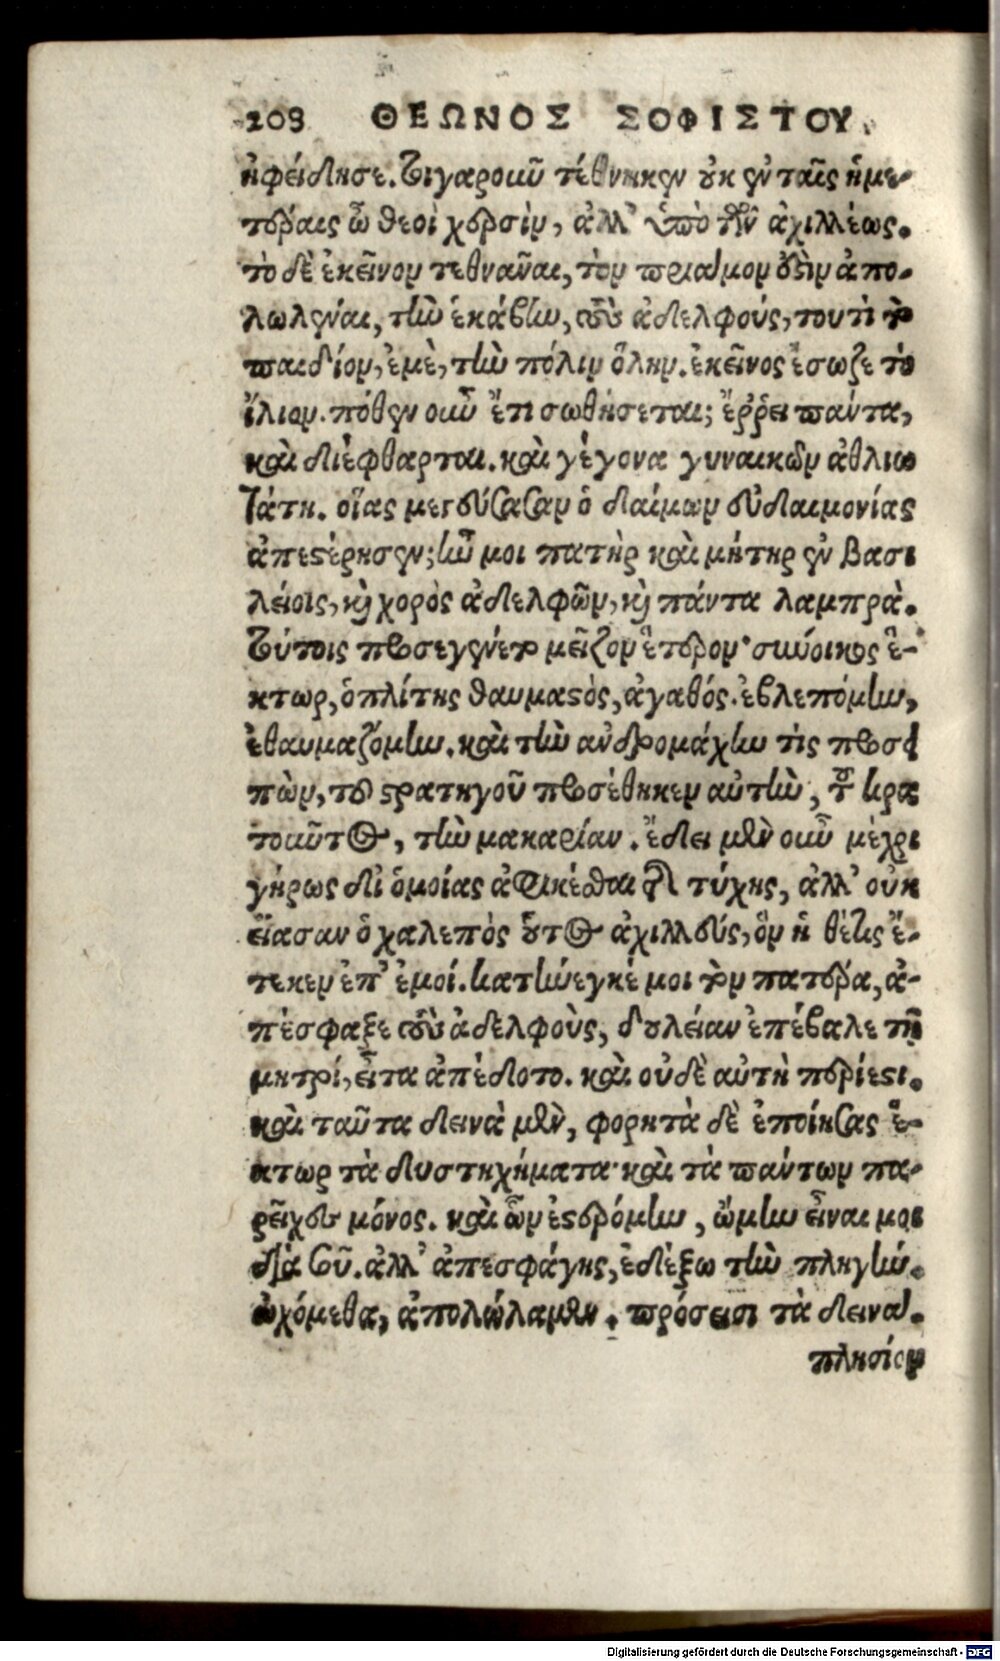 208 ΘΕΩΝΟΣ ΣΟΦΙΣΤΟΥ.
ἠφείδησε. τιγαροῦν τέθνηκεν οὐκ ἐν ταῖς ἡμε-
τέραις ὦ θεοὶ χερσὶν, ἀλλ' ὑπὸ τῶν ἀχιλλέως.
τὸ δὲ ἐκεῖνον τεθνᾶναι, τὸν πρίαμον ὅλιν ἀπο-
λωλέναι, τὴν ἑκάβην, τοὺς ἀδελφούς, τουτὶ τὸ
παιδίον, ἐμὲ, τὴν πόλιν ὅλην. ἐκεῖνος ἔσωζε τὸ
ἴλιον. πόθεν οὖν ἔτι σωθήσεται; ἔῤῥει πάντα,
καὶ διέφθαρται. καὶ γέγονα γυναικῶν ἀθλιω
τάτη. οἵας μετεύξασαν ὁ δαίμων εὐδαιμονίας
ἀπεστέρησεν; ἦν μοι πατὴρ καὶ μήτηρ ἐν βασι
λείοις, καὶ χορὸς ἀδελφῶν, καὶ πάντα λαμπρὰ.
τούτοις προσεγένετο μεῖζον ἕτερον· σύνοικος ἕ-
κτωρ, ὁπλίτης θαυμαστὸς, ἀγαθός. ἐβλεπόμην,
ἐθαυμαζόμην. καὶ τὴν ανδρομάχην τὶς προσει
πὼν, τοῦ στρατηγοῦ προσέθηκεν αὐτὴν, τοῦ κρα
τοῦντος, τὴν μακαρίαν. ἔδει μὲν οὖν μέχρι
γήρως δι ὁμοίας ἀφικέσθαι τῆς τύχης, ἀλλ' οὐκ
εἴασαν ὁ χαλεπὸς οὗτος ἀχιλλεύς, ὃν ἡ θέτις ἔ-
τεκεν ἐπ' ἐμοί. κατήνεγκέ μοι τὸν πατέρα, ἀ-
πέσφαξε τοὺς ἀδελφοὺς, δουλείαν ἐπέβαλε τῇ
μητρί, εἶτα ἀπέδοτο. καὶ οὐδὲ αὐτὴ περίεστι.
καὶ ταῦτα δεινὰ μὲν, φορητὰ δὲ ἐποίησας ἕ-
κτωρ τὰ δυστηχήματα· καὶ τὰ πάντων πα-
ρεῖχες μόνος. καὶ ὧν ἐστερόμην, ᾤμην εἶναι μοι
διὰ σοῦ. ἀλλ' ἀπεσφάγης, ἐδέξω τὴν πληγήν.
ᾠχόμεθα, ἀπολώλαμεν. πρόσεισι τὰ δεινά.
πλησίον
Digitalisierung gefördert durch die Deutsche Forschungsgemeinschaft - DFG